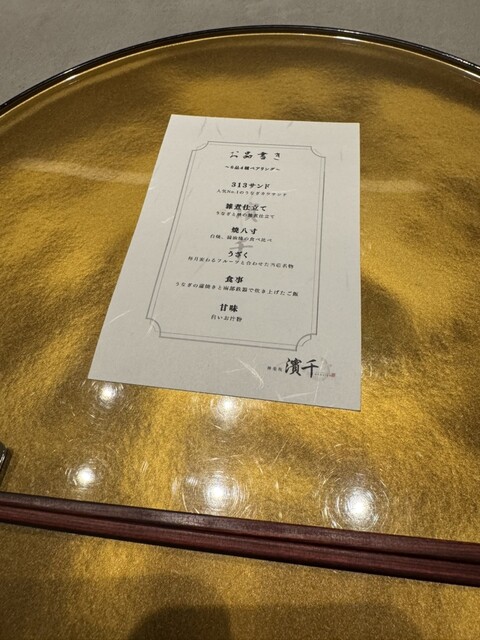 お品書き
〜６品４種ペアリング〜
313サンド
人気No.1のうなぎカツサンド
雑煮仕立て
うなぎと餅の雑煮仕立て
焼八寸
白焼、
の食べ比べ
うざく
毎月変わるフルーツと合わせた当店名物
食事
うなぎの蒲焼きと南部鉄器で炊き上げたご飯
甘味
白いお汁粉
濱千